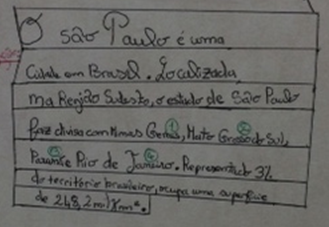 O São Paulo é uma
Cidade em Brasil. Localizada,
na Região Sudeste, o estado de São Paulo
faz divisa com Minas Gerais, Mato Grosso do Sul,
Paraná e Rio de Janeiro. Representado 3%
do território brasileiro, ocupa uma superfície
de 248,2 mil Km².